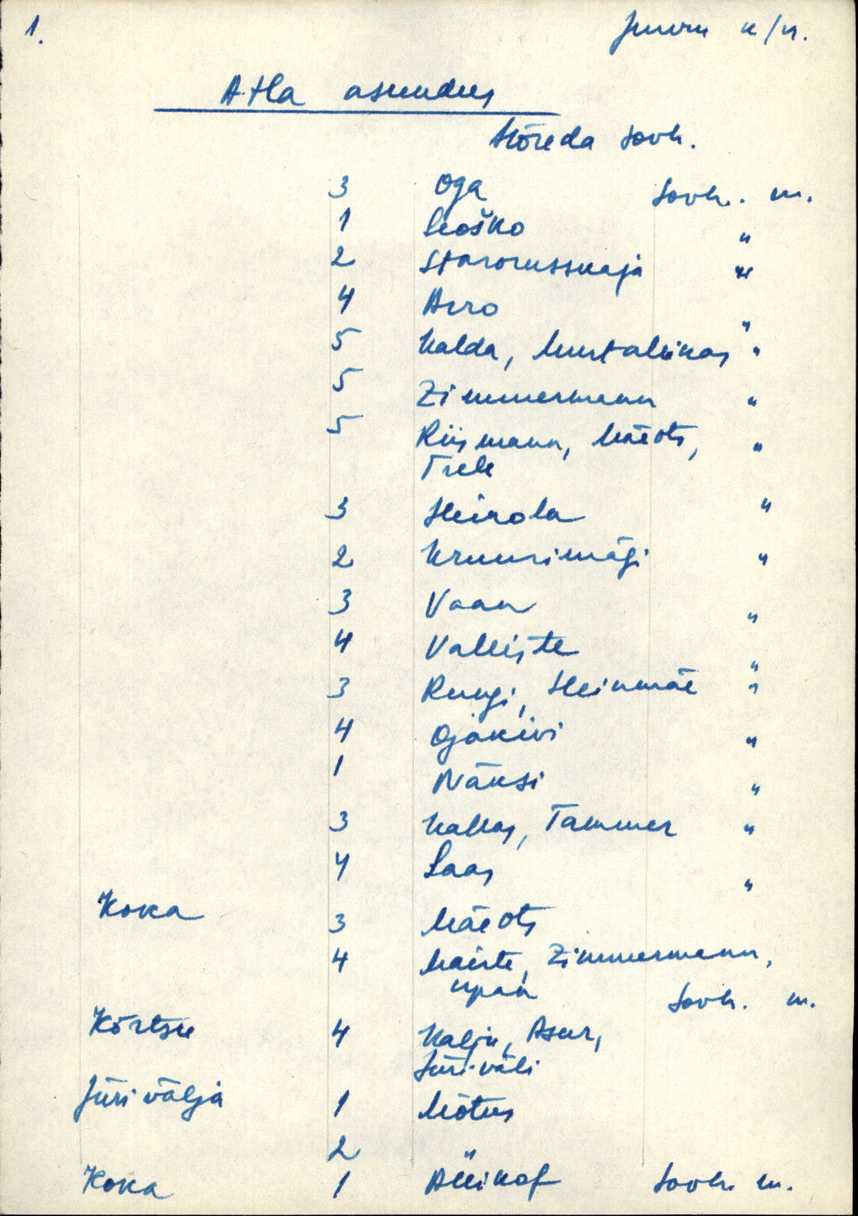 1. Juuru k/n.
Atla asundus
Hõreda sovh.
3 Oga Sovh. m.
1 Loško "
2 Starorusskaja "
4 Arro "
5 Kalda, Mustallikas "
5 Zimmermann "
5 Riismann, Mäeots, "
Trell
3 Heirola "
2 Kruusimägi "
3 Vaan "
4 Valliste "
3 Rungi, Heinmäe "
4 Ojakivi "
1 Näksi "
3 Kallas, Tammer "
4 Saas "
Koka 3 Mäeots
4 Maiste, Zimmermann,
Sovh. m.
Kõrtsu 4 Kalju, Asur,
Jüriväli
Jüri välja 1 Mõtus
2 "
Koka 1 Allikof Sovh. m.